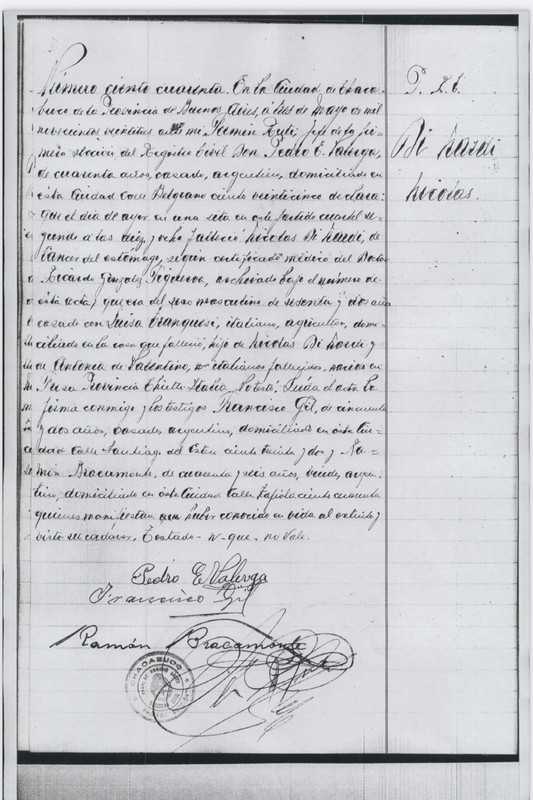 Número ciento cuarenta. En la Ciudad de Chaca-
buco de la Provincia de Buenos Aires, á tres de Mayo de mil
novecientos veintitres mi Fermin jefe de la pri-
mera sección del Registro Civil Don Pedro E. Valerga,
de cuarenta años, casado, argentino, domiciliado en
esta Ciudad calle Belgrano ciento veinticinco declara:
que el dia de ayer en una seta en este partido cuartel se-
gundo á las diez y ocho falleció Nicolas Di Nardi, de
Cáncer del estómago, según certificado médico del Doctor
Ricardo Gonzalez Figueroa, archivado bajo el número de
esta acta; que era del sexo masculino de sesenta y dos años
casado con Luisa Franquesi, italiano, agricultor, domi-
ciliado en la casa que falleció, hijo de Nicolás Di Nardi y
de Antonia de Valentino, italianos fallecidos, nacido en
Fresa Provincia Chietti Italia. No testó. Leida el acta la
firma conmigo y los testigos Francisco Gil, de cincuenta
y dos años, casado, argentino, domiciliado en esta Ciu-
dad calle Santiago del Estero ciento treinta y dos y Ra-
món Bracamonte, de cuarenta y seis años, viudo, argen-
tino, domiciliado en esta Ciudad calle Tapista ciento cuarenta
quienes manifiestan haber conocido en vida al extinto y
visto su cadaver. Testado - n - que - no vale.
Pedro E Valerga
Francisco Gil
Ramón Bracamonte
CHACABUCO
Di Nardi
Nicolas.